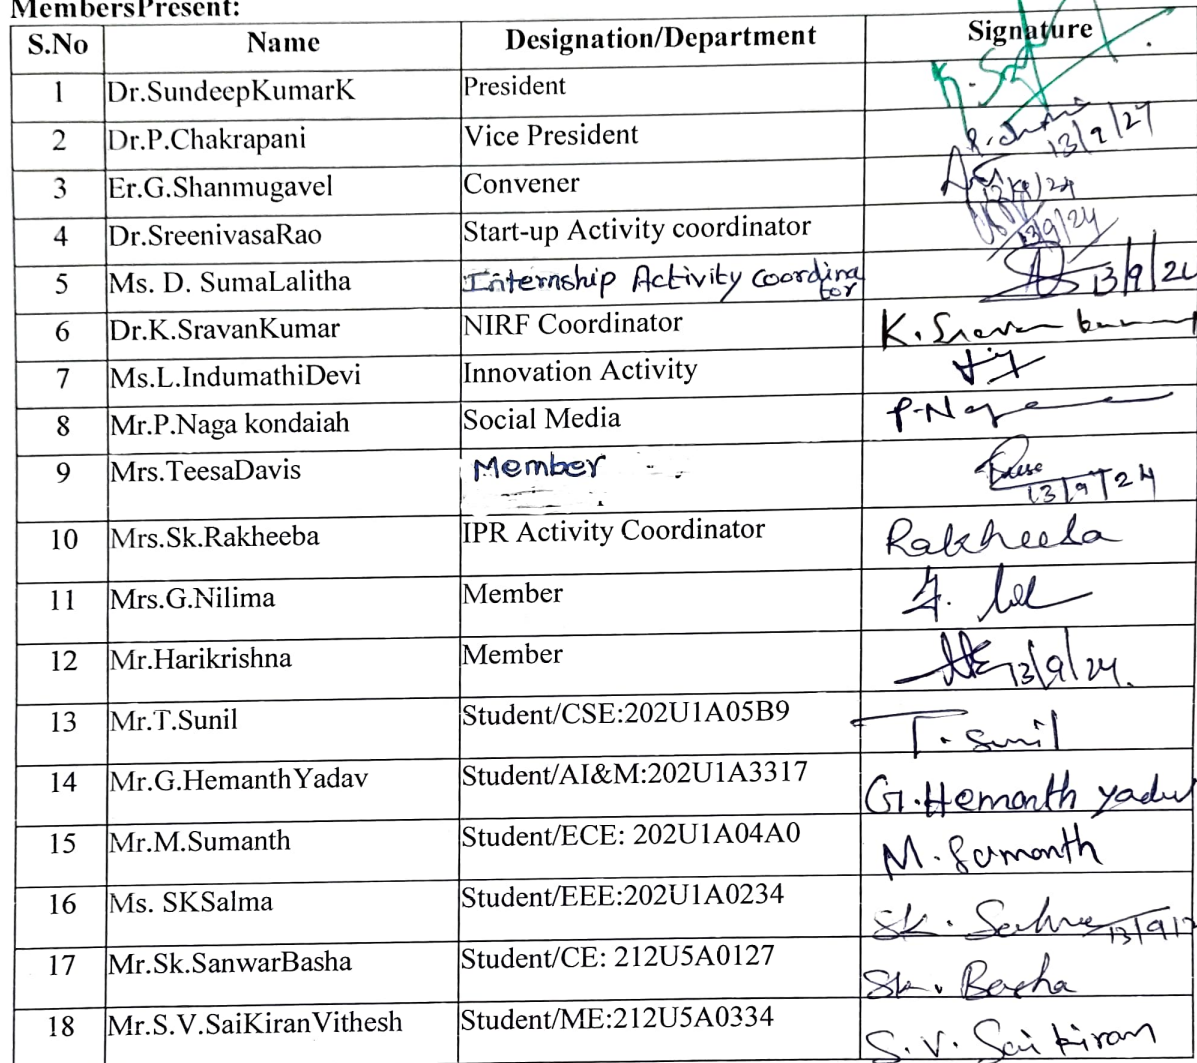 MembersPresent:
S.No Name Designation/Department Signature
1 Dr.SundeepKumarK President
2 Dr.P.Chakrapani Vice President 13/9/24
3 Er.G.Shanmugavel Convener
4 Dr.SreenivasaRao Start-up Activity coordinator 13/9/24
5 Ms. D. SumaLalitha Internship Activity Coordina 13/9/24
tor
6 Dr.K.SravanKumar NIRF Coordinator K. Sravan kumar
7 Ms.L.IndumathiDevi Innovation Activity
8 Mr.P.Naga kondaiah Social Media P-Naga
9 Mrs.TeesaDavis Member
13/9/24
10 Mrs.Sk.Rakheeba IPR Activity Coordinator Rakheeba
11 Mrs.G.Nilima Member
12 Mr.Harikrishna Member 13/9/24.
13 Mr.T.Sunil Student/CSE:202U1A05B9 T. Sunil
14 Mr.G.HemanthYadav Student/AI&M:202U1A3317 G.Hemanth yadav
15 Mr.M.Sumanth Student/ECE: 202U1A04A0 M. Sumanth
16 Ms. SKSalma Student/EEE:202U1A0234 Sk. Salma
17 Mr.Sk.SanwarBasha Student/CE: 212U5A0127 Sk. Basha
18 Mr.S.V.SaiKiranVithesh Student/ME:212U5A0334 S. V. Sai kiran